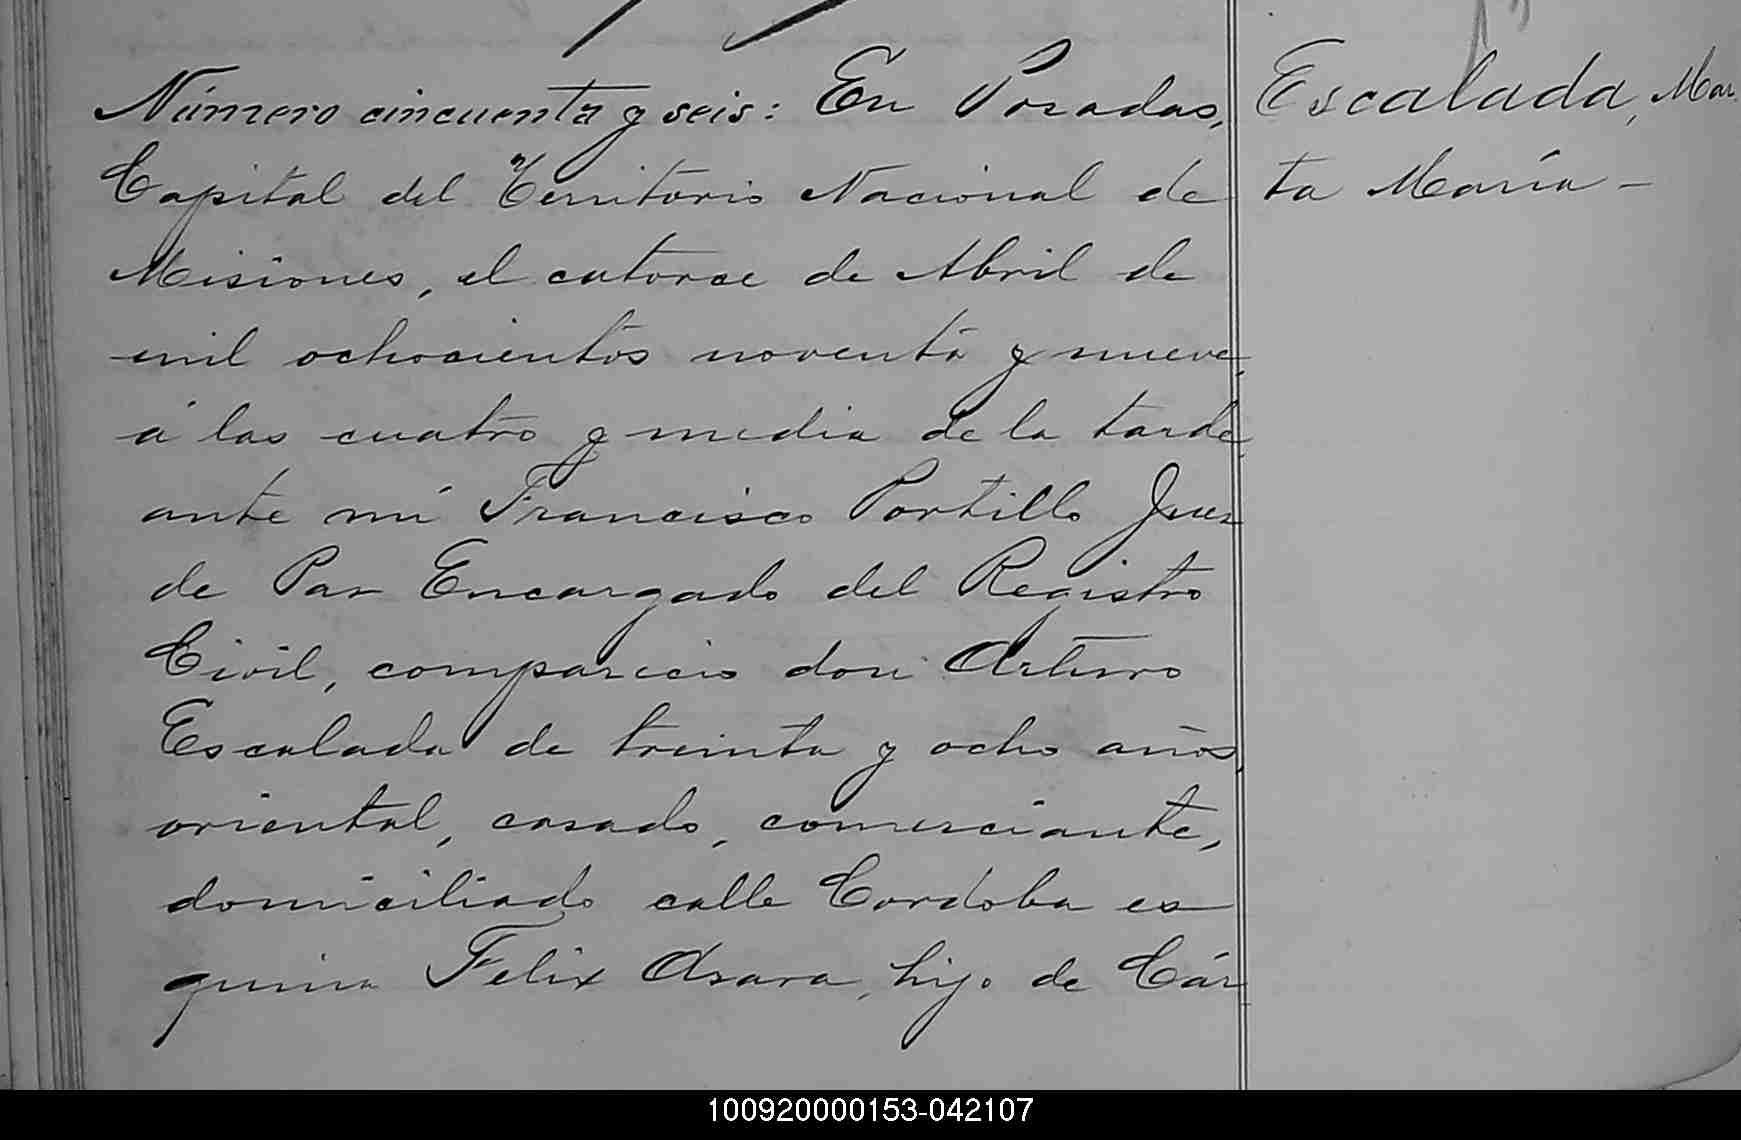 Número cincuenta y seis: En Posadas,
Capital del Territorio Nacional de
Misiones, el catorce de Abril de
mil ochocientos noventa y nueve,
á las cuatro y media de la tarde,
ante mí Francisco Portillo Juez
de Paz Encargado del Registro
Civil, compareció don Arturo
Escalada de treinta y ocho años,
oriental, casado, comerciante,
domiciliado calle Cordoba es
quina Felix Asara, hijo de Cár
Escalada, Mar
ta María -
100920000153-042107